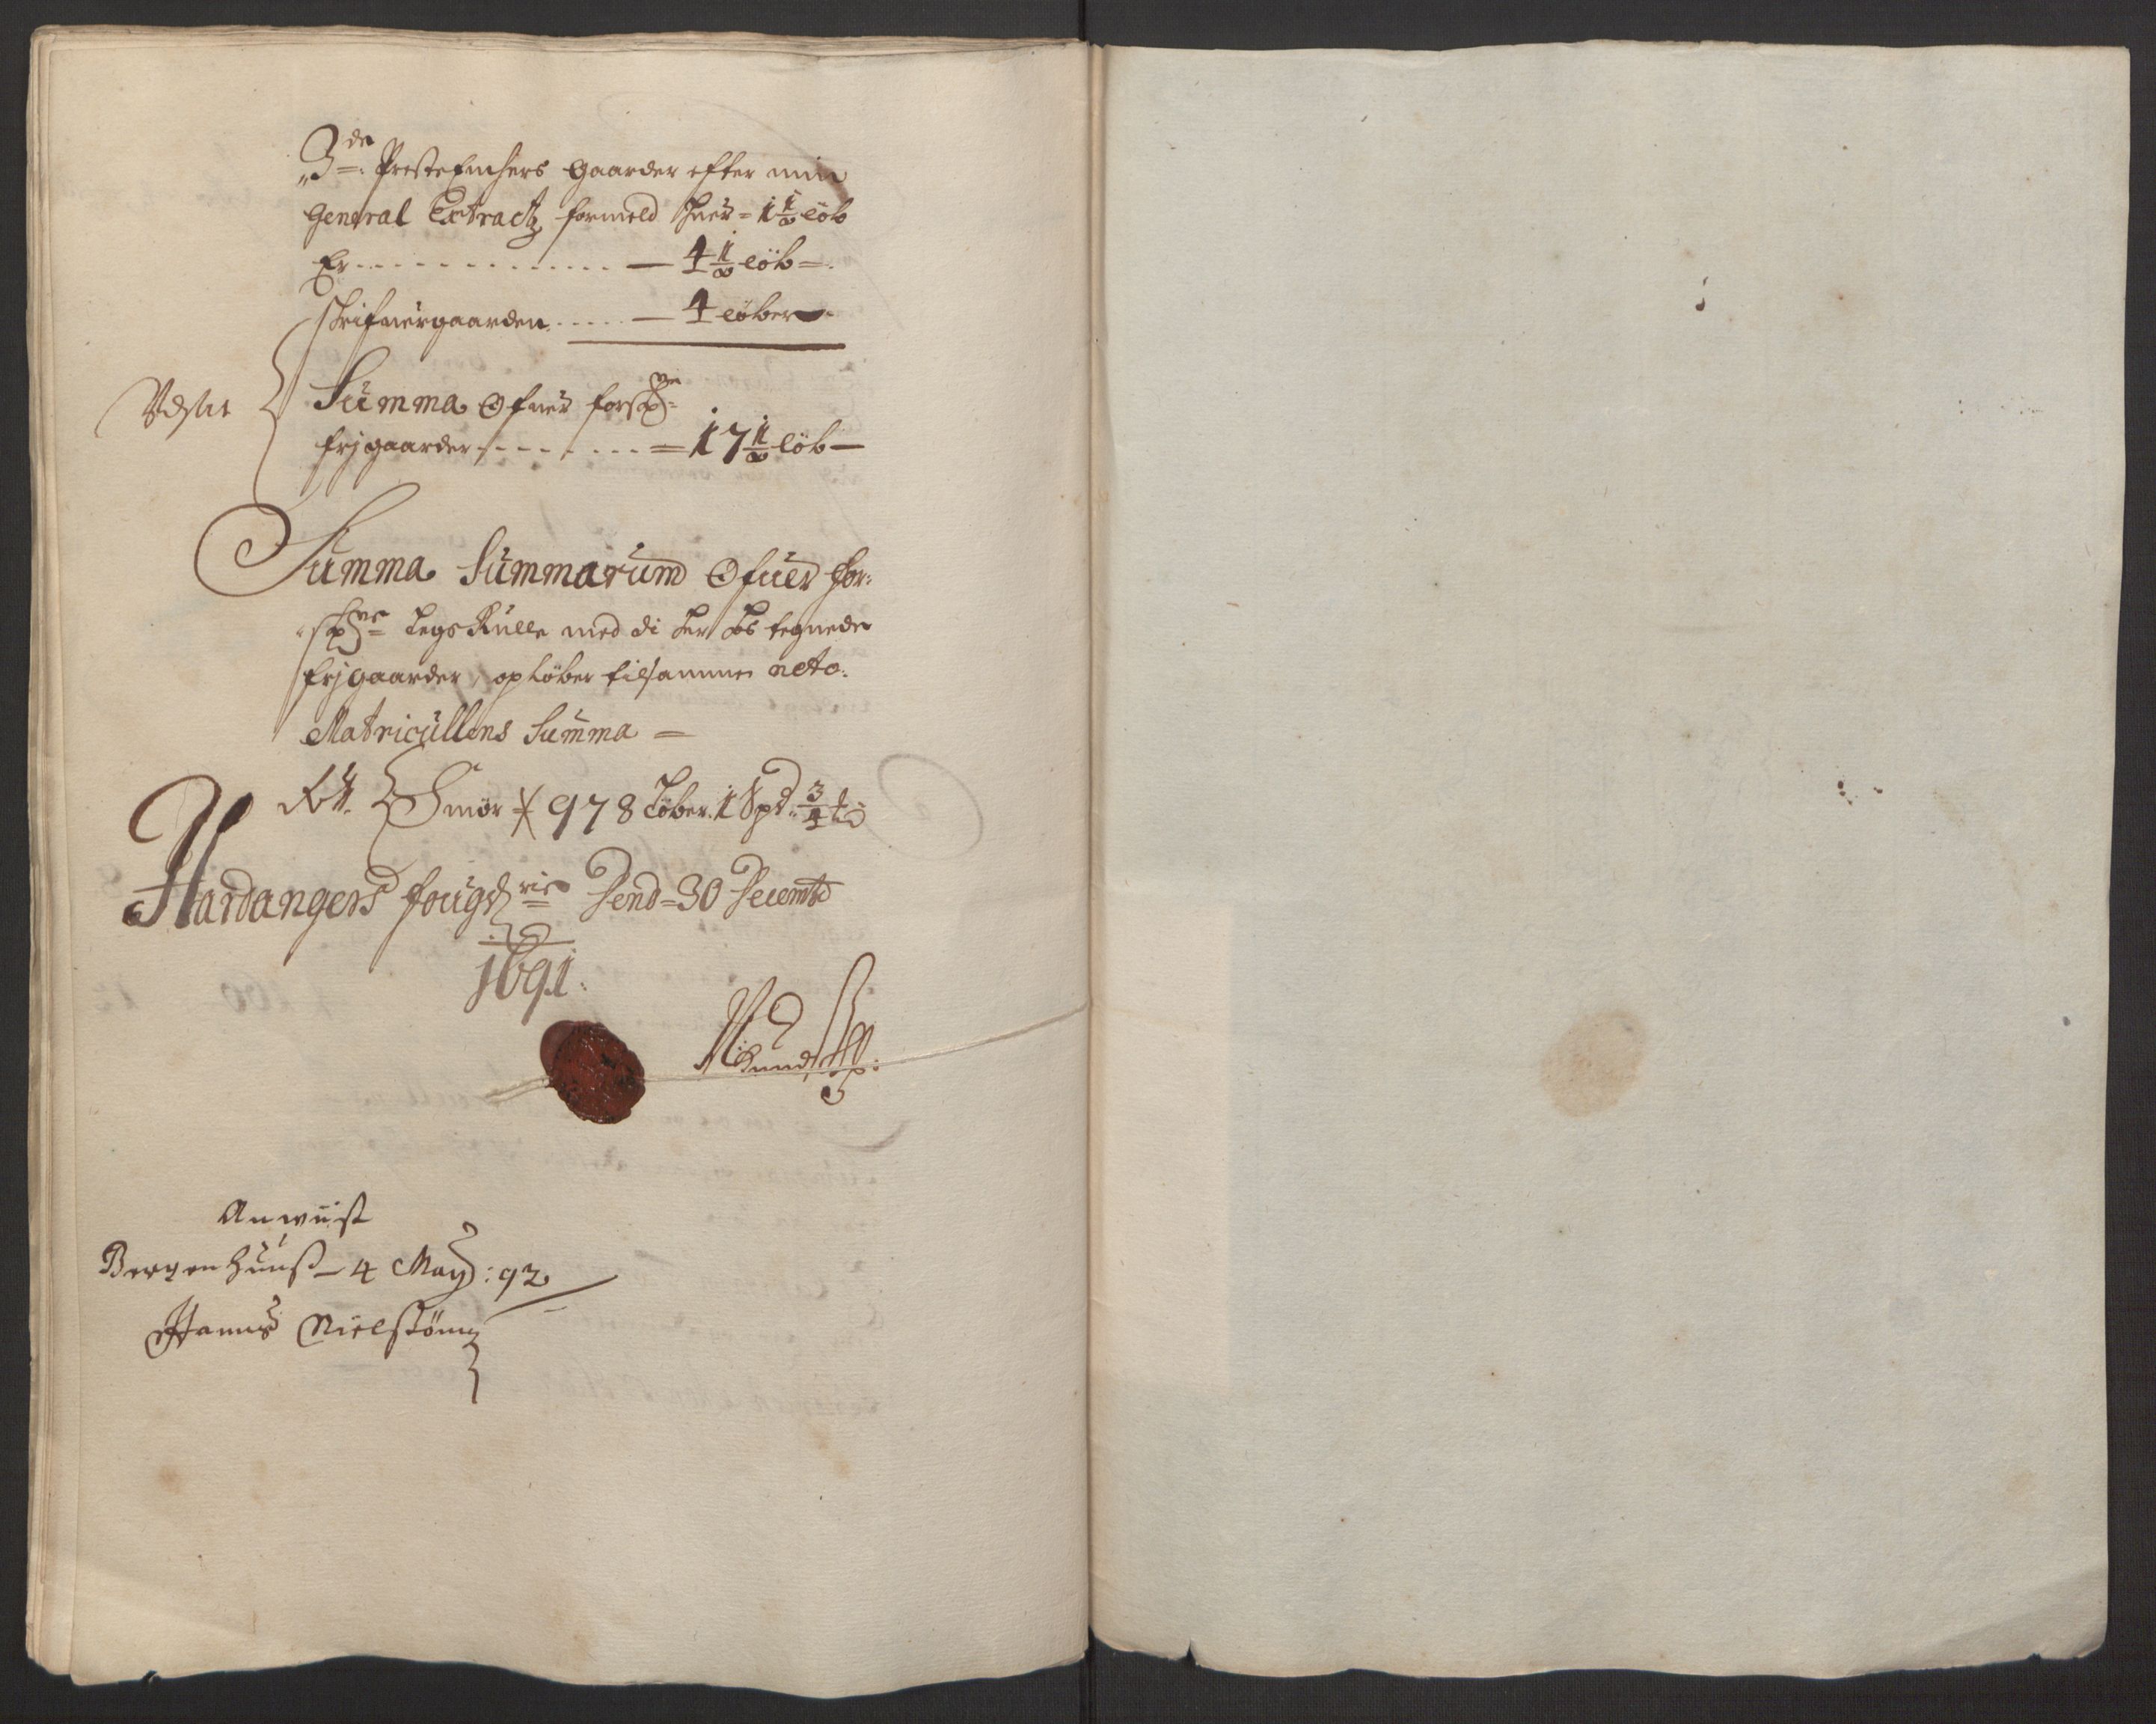 3de Preste Enchers gaarder efter min
General Extract, formeld huer = 1½ løb
Er - - - - 4½ løb =
Skrifuergaarden - - - 4 løber
Summa Ofuer forschr:ne
frjgaarder - - - = 17½ løb —
Summa Summarum Ofuer for-
schr:ne Legs Rulle med di her hos tegnede
frjgaarder, opløber tilsammen neto
Matricullens Summa =
Smør 978 Løber 1 Spd: ¾
Hardangers fougdrie Dend = 30 Decemb
1691.
Anwiist
Bergenhuuss 4 May: 92
Hanns Nielssønn